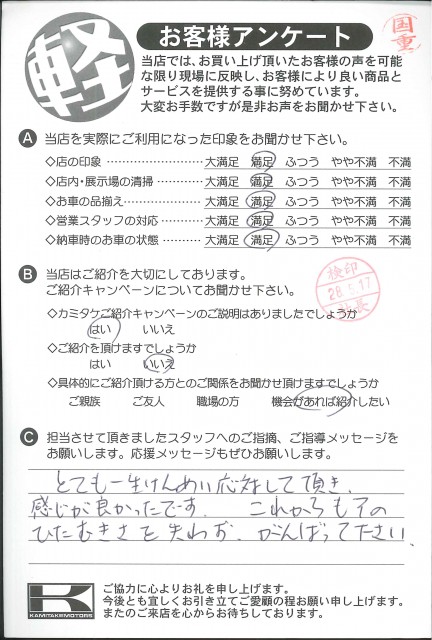 軽
お客様アンケート
国重
当店では、お買い上げ頂いたお客様の声を可能
な限り現場に反映し、お客様により良い商品と
サービスを提供する事に努めています。
大変お手数ですが是非お声をお聞かせ下さい。
A 当店を実際にご利用になった印象をお聞かせ下さい。
◇店の印象 ………………… 大満足 満足 ふつう やや不満 不満
◇店内・展示場の清掃 ………… 大満足 満足 ふつう やや不満 不満
◇お車の品揃え ……………… 大満足 満足 ふつう やや不満 不満
◇営業スタッフの対応 ………… 大満足 満足 ふつう やや不満 不満
◇納車時のお車の状態 ………… 大満足 満足 ふつう やや不満 不満
B 当店はご紹介を大切にしております。
ご紹介キャンペーンについてお聞かせ下さい。
検印
28.5.17
社長
◇カミタケご紹介キャンペーンのご説明はありましたでしょうか
はい いいえ
◇ご紹介を頂けますでしょうか
はい いいえ
◇具体的にご紹介頂ける方とのご関係をお聞かせ頂けますでしょうか
ご親族 ご友人 職場の方 機会があれば紹介したい
C 担当させて頂きましたスタッフへのご指摘、ご指導メッセージを
お願いします。応援メッセージもぜひお願いします。
とても一生けんめい応対して頂き、
感じが良かったです。 これからもその
ひたむきさを失わず、がんばって下さい、
K
KAMITAKEMOTORS
ご協力に心よりお礼を申し上げます。
今後とも宜しくお引き立てご愛顧の程お願い申し上げます。
またのご来店を心からお待ちしております。